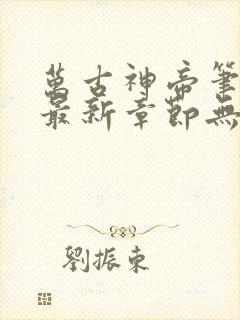 萬古神帝筆
最新章節無
劉振東